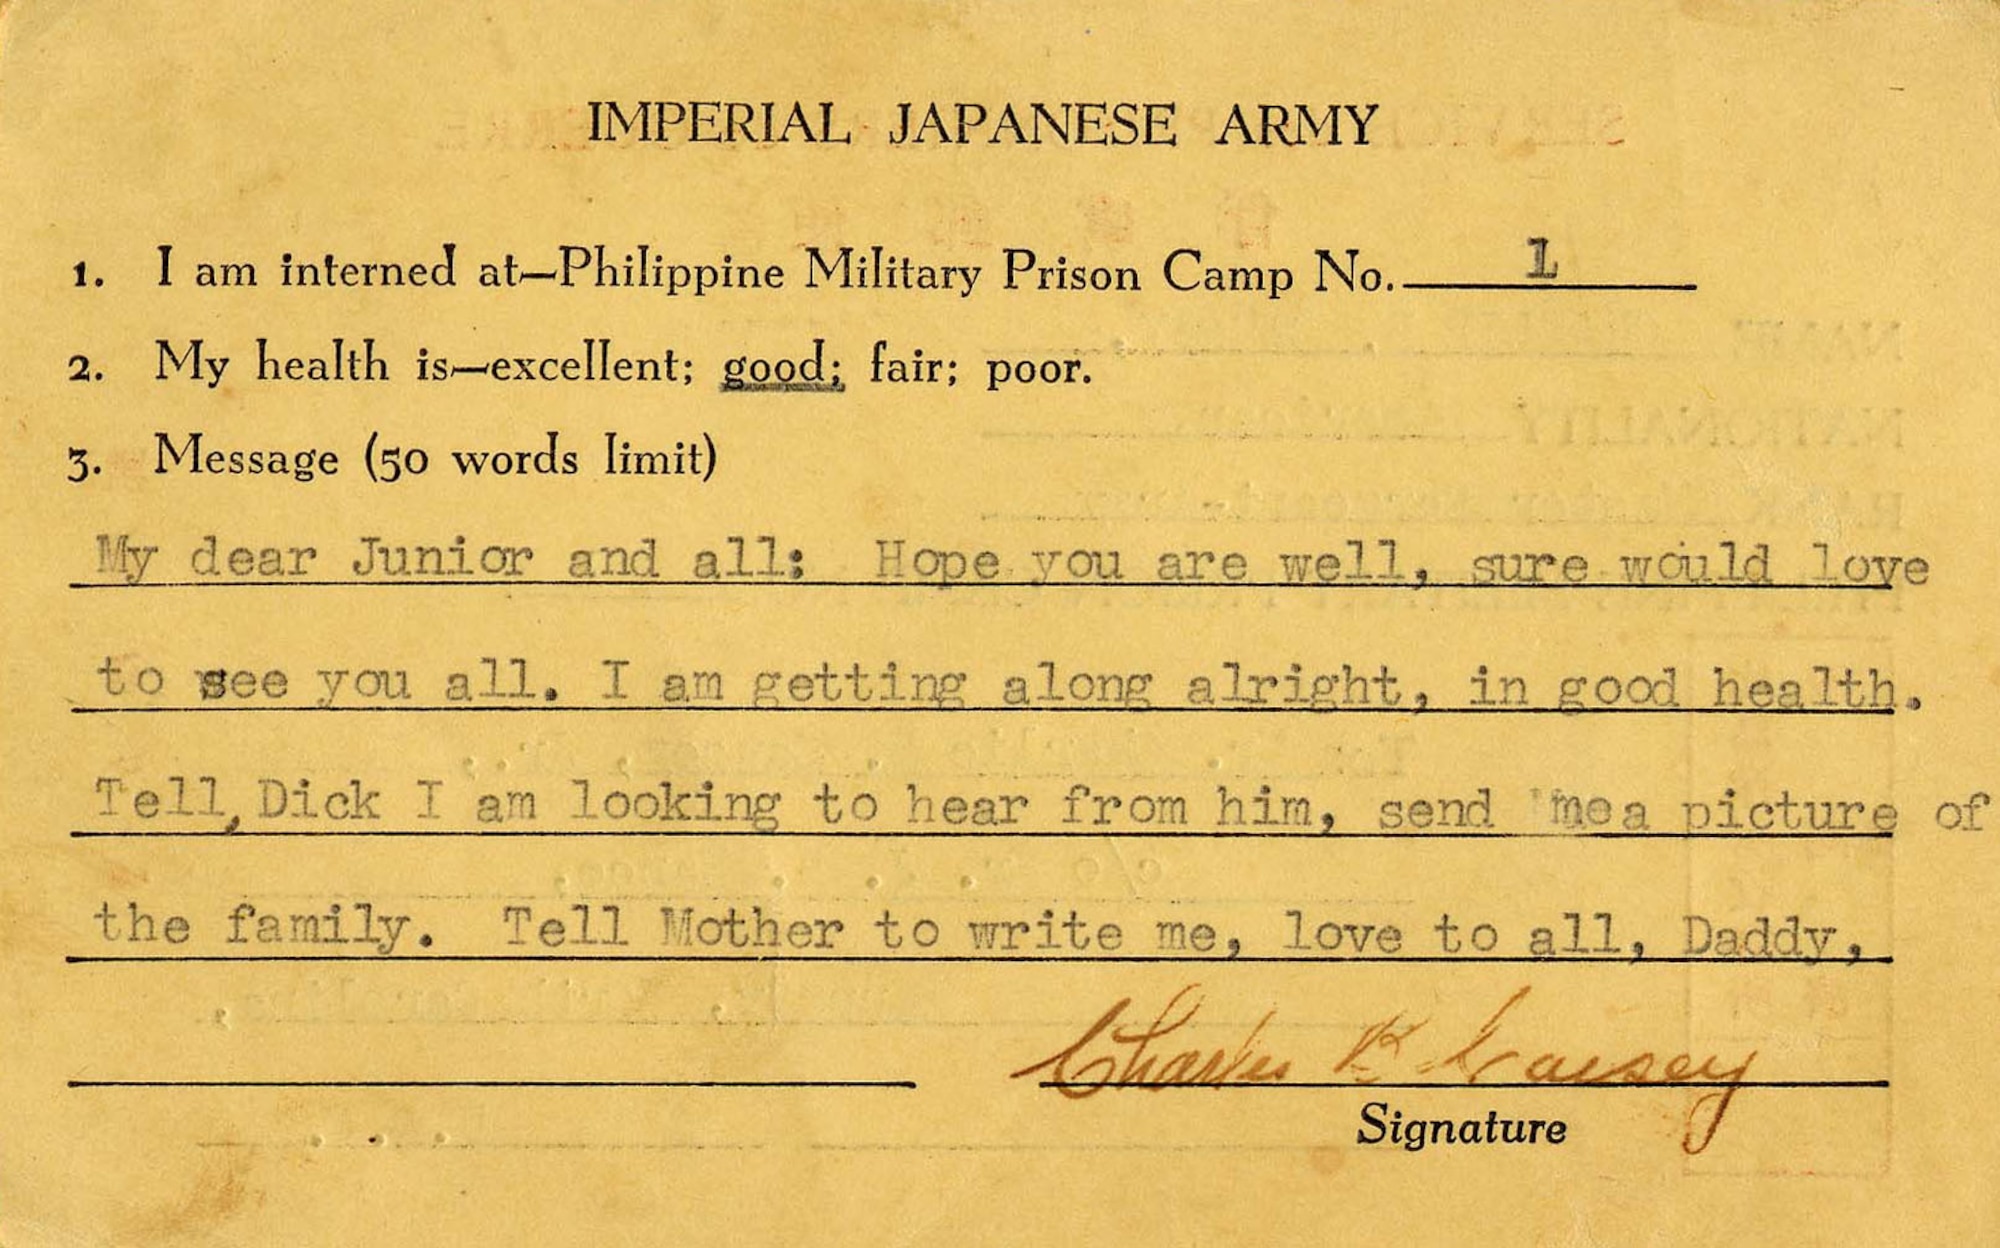 IMPERIAL JAPANESE ARMY
1. I am interned at—Philippine Military Prison Camp No. 1
2. My health is—excellent; good; fair; poor.
3. Message (50 words limit)
My dear Junior and all: Hope you are well, sure would love
to see you all. I am getting along alright, in good health.
Tell, Dick I am looking to hear from him, send me a picture of
the family. Tell Mother to write me, love to all, Daddy,
Charles
Signature